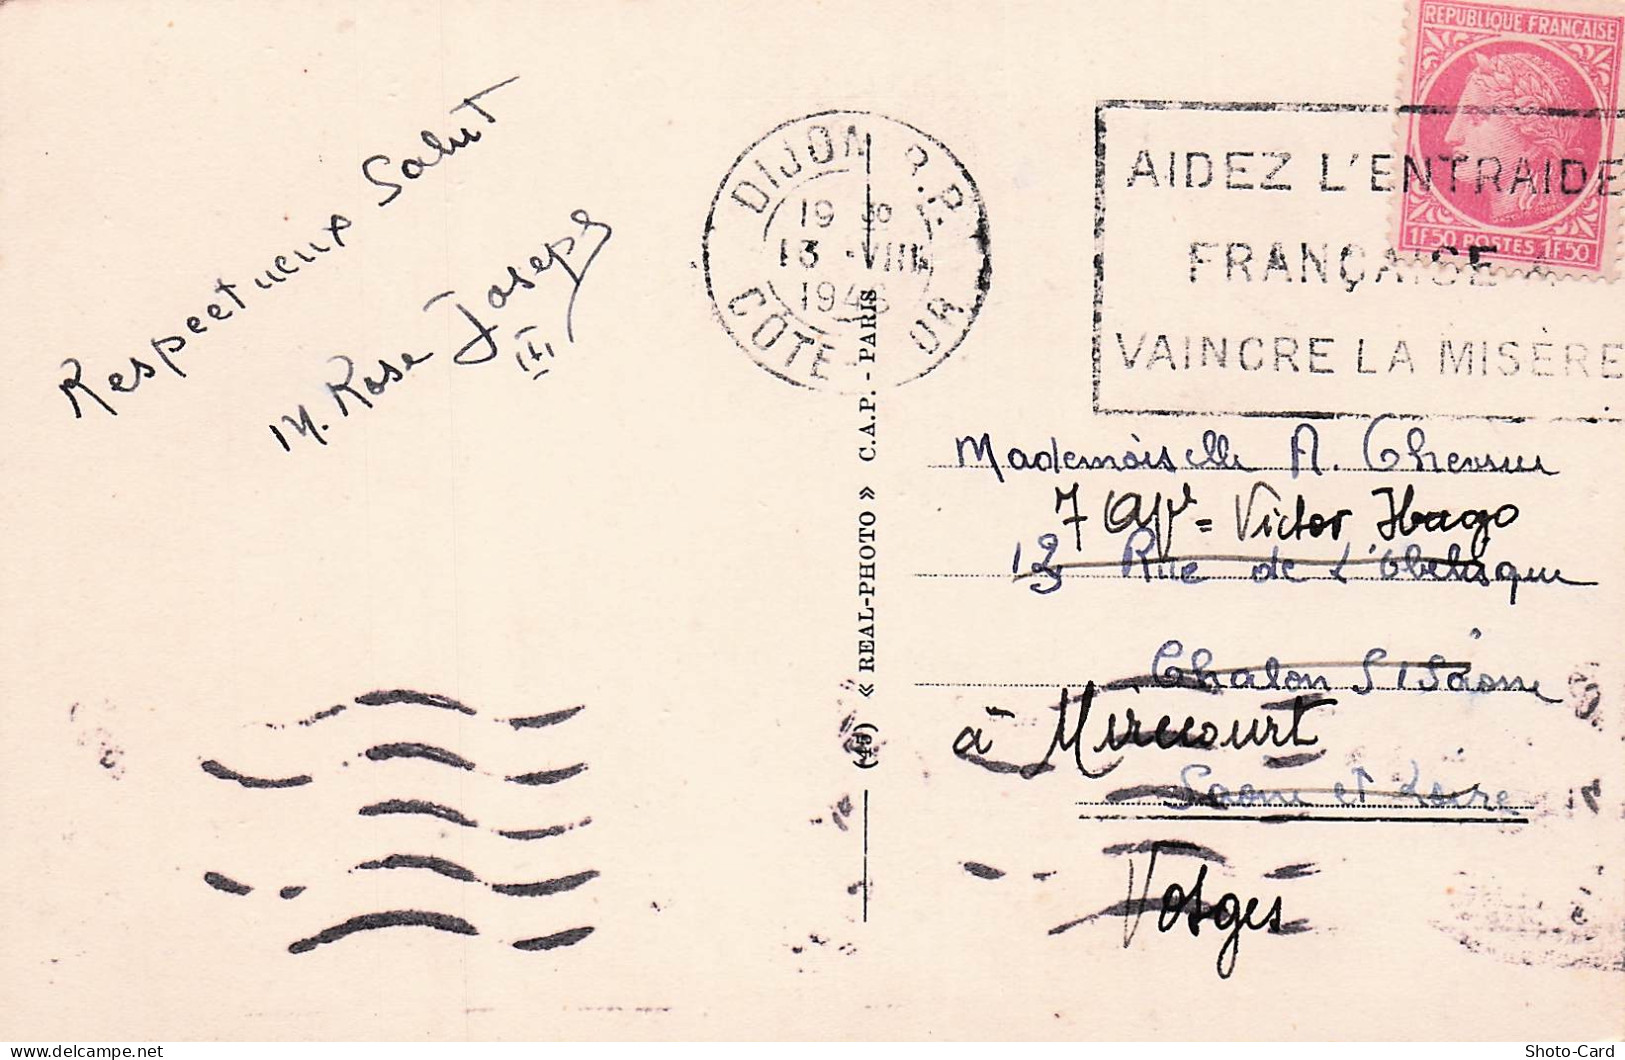 Respectueux Salut
M. Rose Joseph
DIJON R.P.
19 30
13 -VIII
1946
COTE D'OR
REPUBLIQUE FRANÇAISE
1F50 POSTES 1F50
AIDEZ L'ENTRAIDE
FRANÇAISE
VAINCRE LA MISÈRE
(45) « REAL-PHOTO » C.A.P. - PARIS
Mademoiselle A.
7 Victor Hugo
Rue de L'Obelisque
Chalon S/Saône
à Mirecourt
Saone et Loire
Vosges
Shoto-Card